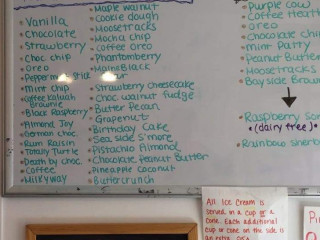 Vanilla
Chocolate
Strawberry
Choc chip
Oreo
Peppermint Stick
Mint chip
Coffee Kaluah
Brownie
Black Raspberry
Almond Joy
German choc.
Rum Raisin
Totally Turtle
Death by choc
Coffee
Milkyway
Maple walnut
Cookie dough
Moosetracks
Mocha chip
Coffee Oreo
Phantomberry
Black
Strawberry cheesecake
Choc walnut fudge
Butter Pecan
Grapenut
Birthday Cake
Sea side S'more
Pistachio Almond
Chocolate Peanut Butter
Pineapple Coconut
Buttercrunch
Purple Cow
Coffee Heath
Oreo
Chocolate chip
Mint Patty
Peanut Butter
Moosetracks
Bay side Brownie
Raspberry
(dairy free)
Rainbow
All Ice Cream is
served in a cup or a
cone. Each additional
cup or cone on the side is
an extra